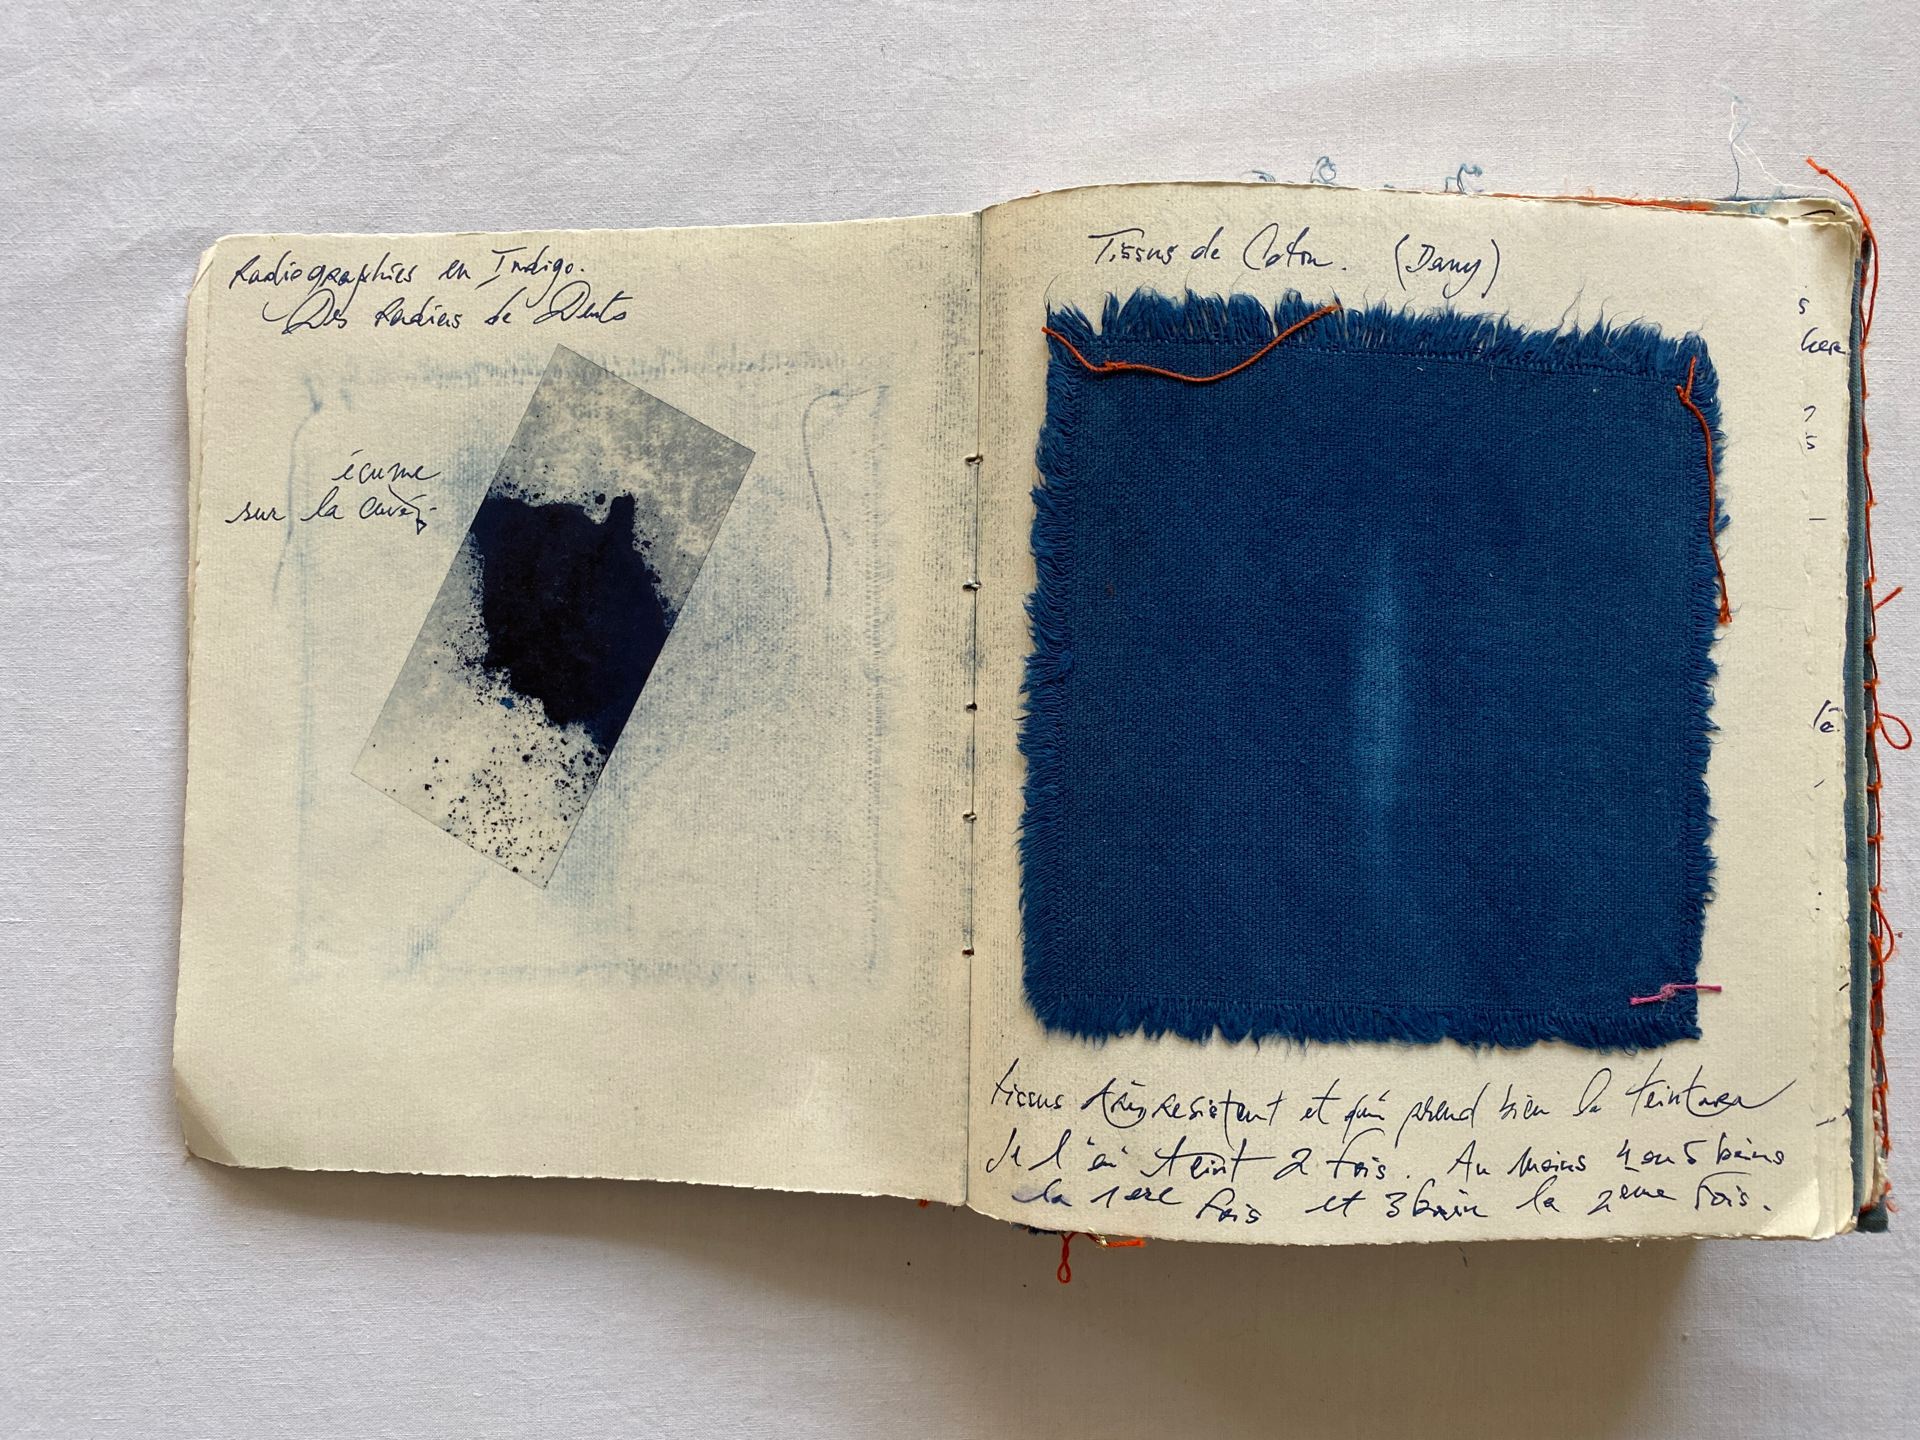 Radiographies en Indigo.
Des Radios de Dents
écume
sur la cuve
Tissus de Coton. (Dany)
tissus très resistent et qui prend bien la teinture
Je l'ai teint 2 fois. Au moins 4 ou 5 bains
la 1ere fois et 3 bain la 2eme fois.